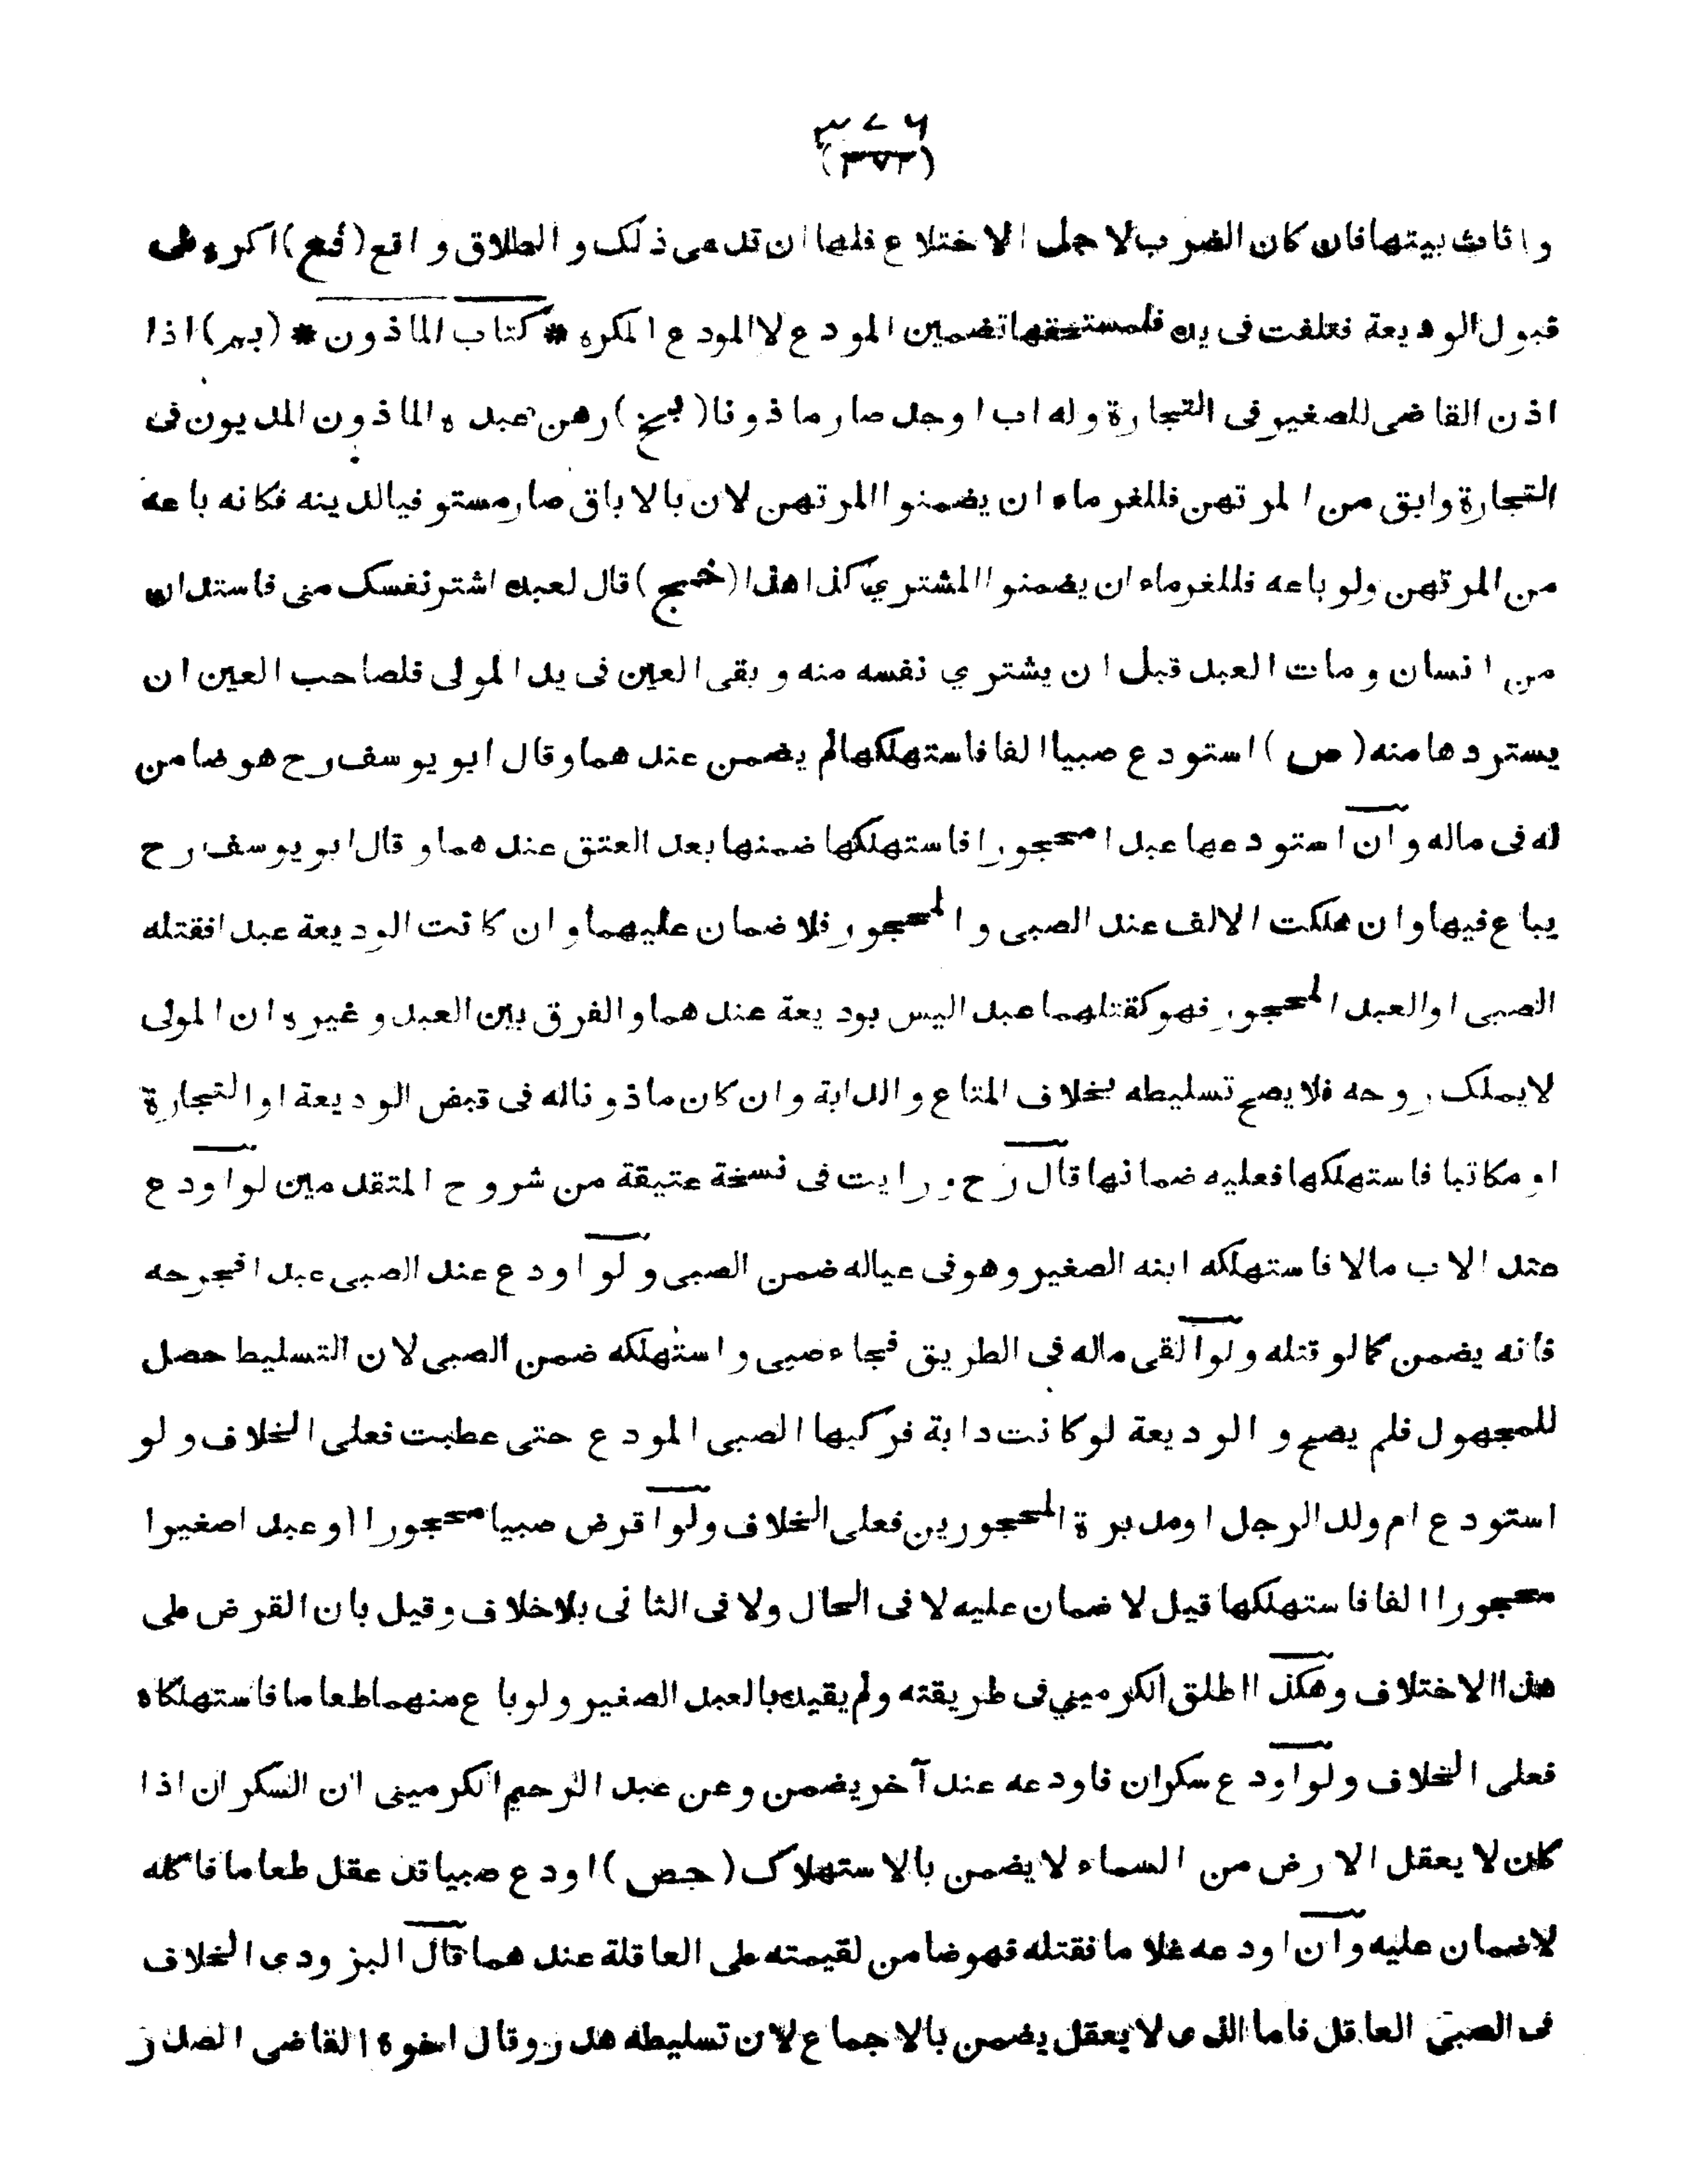 (٣٧٢)
واثاث بيتها فان كان الضرب لاجل الاختلاع فلها ان تدعى ذلك والطلاق واقع (فع) اكره على
قبول الوديعة فتلفت فى يده فلمستحقها تضمين المودع لا المودع المكره * كتاب الماذون * (بم) اذا
اذن القاضى للصغير فى التجارة وله اب اوجد صار ماذونا (بخ) رهن عبده الماذون المديون فى
التجارة وابق من المرتهن فللغرماء ان يضمنوا المرتهن لان بالاباق صار مستوفيا لدينه فكانه باعه
من المرتهن ولو باعه فللغرماء ان يضمنوا المشتري كذا هذا (خج) قال لعبده اشتر نفسك منى فاستدان
من انسان ومات العبد قبل ان يشتري نفسه منه وبقى العين فى يد المولى فلصاحب العين ان
يستردها منه (ص) استودع صبيا الفا فاستهلكها لم يضمن عندهما وقال ابو يوسف رح هو ضامن
له فى ماله وان استودعها عبدا محجورا فاستهلكها ضمنها بعد العتق عندهما وقال ابو يوسف رح
يباع فيها وان هلكت الالف عند الصبى والمحجور فلا ضمان عليهما وان كانت الوديعة عبدا فقتله
الصبى او العبد المحجور فهو كقتلهما عبدا ليس بوديعة عندهما والفرق بين العبد وغيره ان المولى
لايملك روحه فلا يصح تسليطه بخلاف المتاع والدابة وان كان ماذونا له فى قبض الوديعة او التجارة
او مكاتبا فاستهلكها فعليه ضمانها قال رح ورايت فى نسخة عتيقة من شروح المتقدمين لو اودع
عند الاب مالا فاستهلكه ابنه الصغير وهو فى عياله ضمن الصبى ولو اودع عند الصبى عبدا فجرحه
فانه يضمن كما لو قتله ولو القى ماله فى الطريق فجاء صبى واستهلكه ضمن الصبى لان التسليط حصل
للمجهول فلم يصح والوديعة لو كانت دابة فركبها الصبى المودع حتى عطبت فعلى الخلاف ولو
استودع ام ولد الرجل او مدبرة المحجورين فعلى الخلاف ولو اقرض صبيا محجورا او عبدا صغيرا
محجورا الفا فاستهلكها قيل لا ضمان عليه لا فى الحال ولا فى الثانى بلا خلاف وقيل بان القرض على
هذا الاختلاف وهكذا اطلق الكرميني فى طريقته ولم يقيده بالعبد الصغير ولو باع منهما طعاما فاستهلكاه
فعلى الخلاف ولو اودع سكران فاودعه عند آخر يضمن وعن عبد الرحيم الكرمينى ان السكران اذا
كان لا يعقل الارض من السماء لا يضمن بالاستهلاك (جص) اودع صبيا قد عقل طعاما فاكله
لاضمان عليه وان اودعه غلاما فقتله فهو ضامن لقيمته على العاقلة عندهما قال البزودى الخلاف
فى الصبى العاقل فاما الذى لا يعقل يضمن بالاجماع لان تسليطه هدر وقال اخوه القاضى الصدر